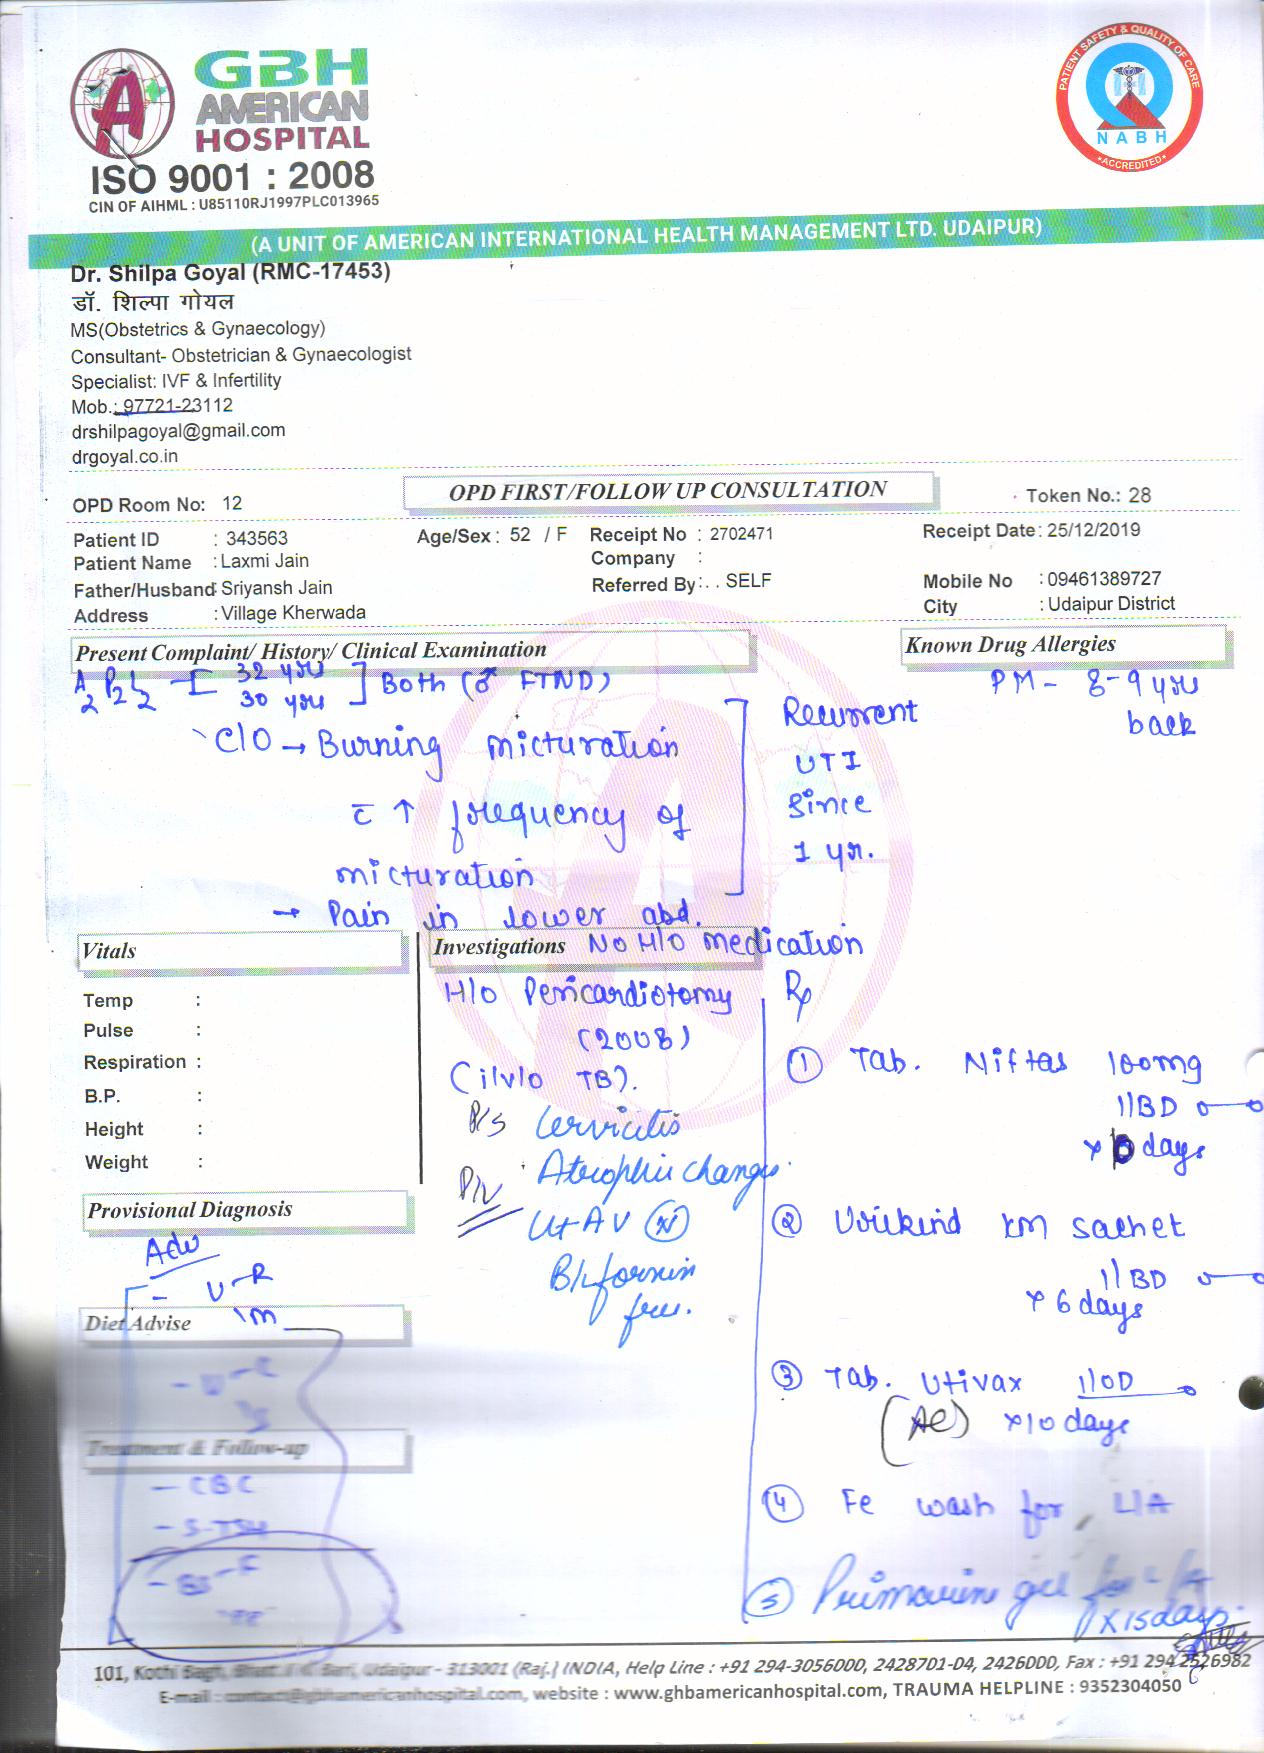 GBH
AMERICAN
HOSPITAL
ISO 9001 : 2008
CIN OF AIHML : U85110RJ1997PLC013965
PATIENT SAFETY & QUALITY OF CARE
NABH
ACCREDITED
(A UNIT OF AMERICAN INTERNATIONAL HEALTH MANAGEMENT LTD. UDAIPUR)
Dr. Shilpa Goyal (RMC-17453)
डॉ. शिल्पा गोयल
MS(Obstetrics & Gynaecology)
Consultant- Obstetrician & Gynaecologist
Specialist: IVF & Infertility
Mob.: 97721-23112
drshilpagoyal@gmail.com
drgoyal.co.in
OPD Room No: 12 OPD FIRST/FOLLOW UP CONSULTATION Token No.: 28
Patient ID : 343563 Age/Sex : 52 / F Receipt No : 2702471 Receipt Date : 25/12/2019
Patient Name : Laxmi Jain Company :
Father/Husband : Sriyansh Jain Referred By : . . SELF Mobile No : 09461389727
Address : Village Kherwada City : Udaipur District
Present Complaint/ History/ Clinical Examination Known Drug Allergies
A2 P2 L2 32 yrs Both (♂ FTND) PM - 8-9 yrs
30 yrs back
C/O → Burning micturation Recurrent
c̄ ↑ frequency of UTI
micturation since
1 yr.
→ Pain in lower abd.
Vitals Investigations No H/O medication
H/O Pericardiotomy Rp
(2008)
(i/v/o TB).
Temp :
Pulse :
Respiration :
B.P. :
Height :
Weight :
P/S Cervicitis
Atrophic changes.
P/V Ut AV (N)
B/L fornix
free.
① Tab. Niftas 100mg
1 BD
x days
② Urikind KM sachet
1 BD
x 6 days
③ Tab. Utivax 1 OD
(AC) x10 days
④ Fe wash for L/A
⑤ Primarin gel for L/A
x 15 days.
Provisional Diagnosis
Adv
- U-R
M
Diet Advise
Treatment & Follow-up
- CBC
- S-TSH
101, Kothi Bagh, Udaipur - 313001 (Raj.) INDIA, Help Line : +91 294-3056000, 2428701-04, 2426000, Fax : +91 294 2526982
E-mail : contact@gbhamericanhospital.com, website : www.ghbamericanhospital.com, TRAUMA HELPLINE : 9352304050